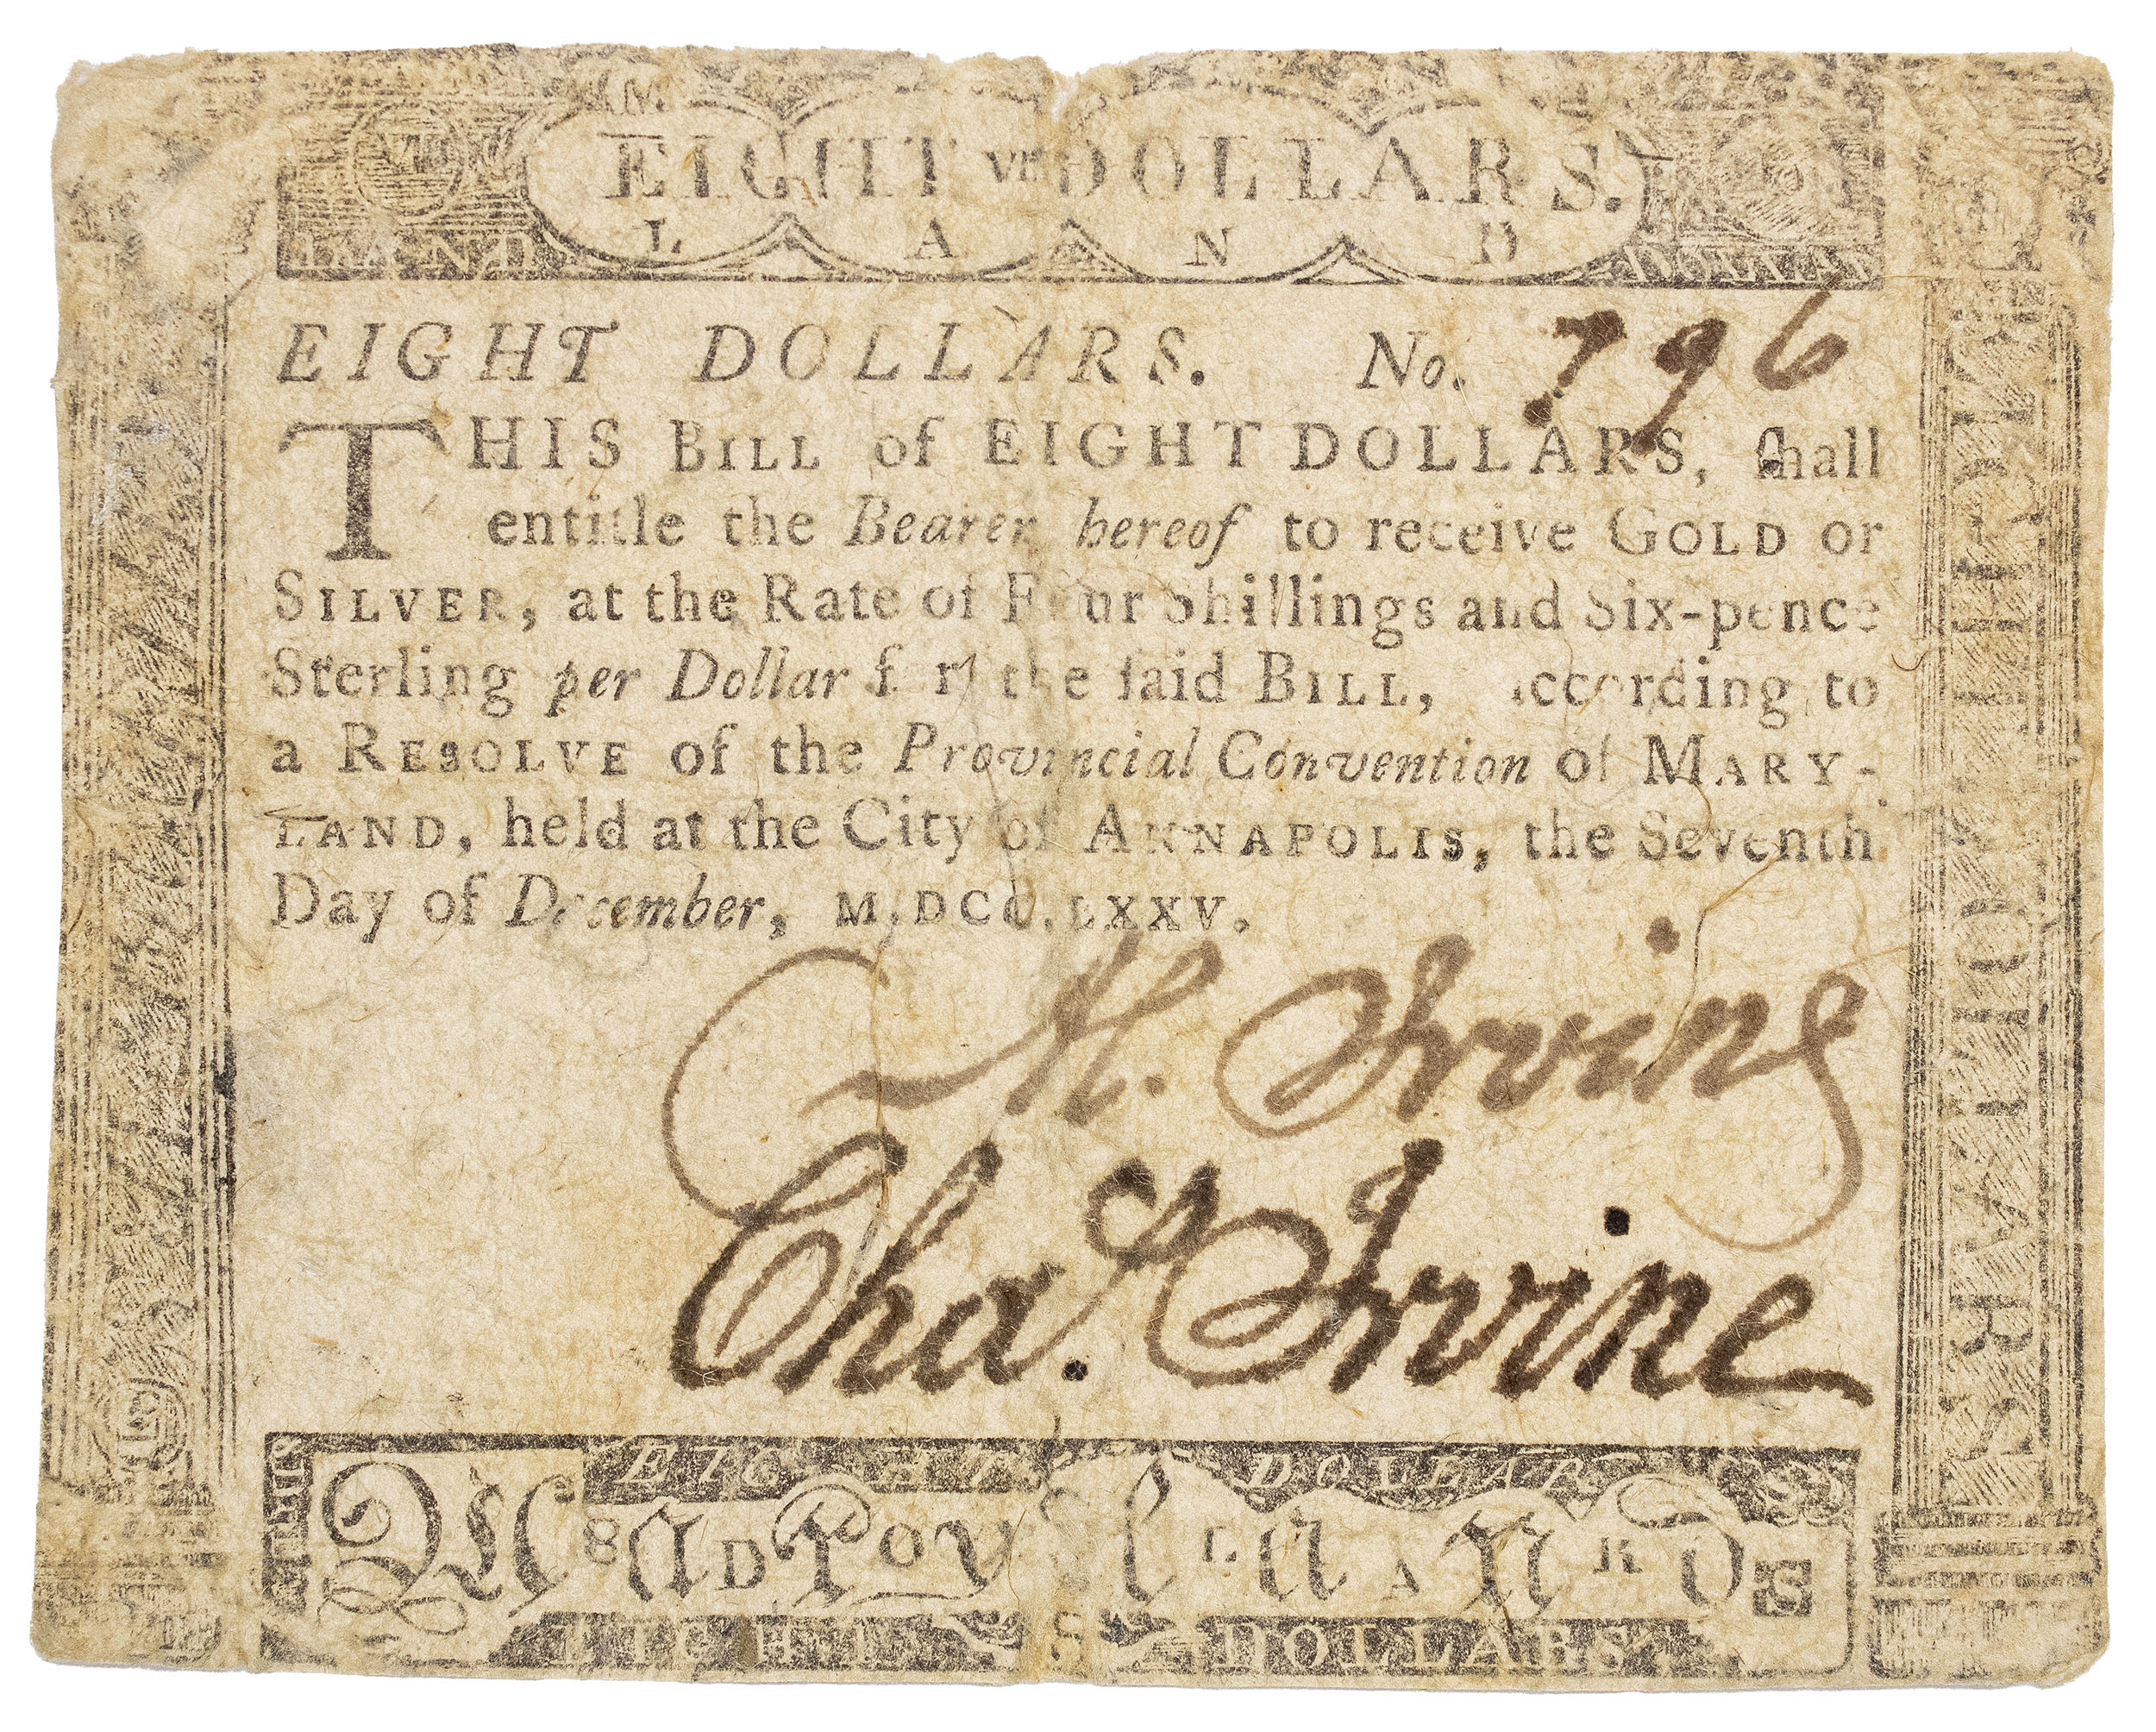 EIGHT DOLLARS.
L A N D
EIGHT DOLLARS. No. 796
THIS BILL of EIGHT DOLLARS, ſhall
entitle the Bearer hereof to receive GOLD or
SILVER, at the Rate of Four Shillings and Six-pence
Sterling per Dollar for the ſaid BILL, according to
a RESOLVE of the Provincial Convention of MARY-
LAND, held at the City of ANNAPOLIS, the Seventh
Day of December, M,DCC,LXXV.
M. Irving
Chaˢ. Irvine
EIGHT DOLLARS
EIGHT DOLLARS